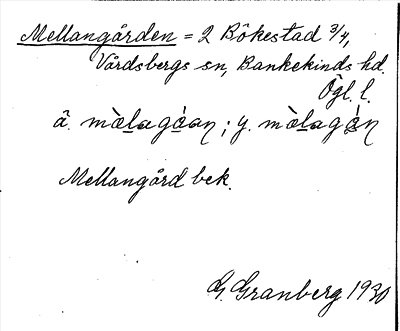 Mellangården = 2 Bökestad 3/4,
Vårdsbergs sn, Bankekinds hd.
Ögl. l.
ä. mælagɑ́an; y. mælagɑ́n
Mellangård bek.
G. Granberg 1930